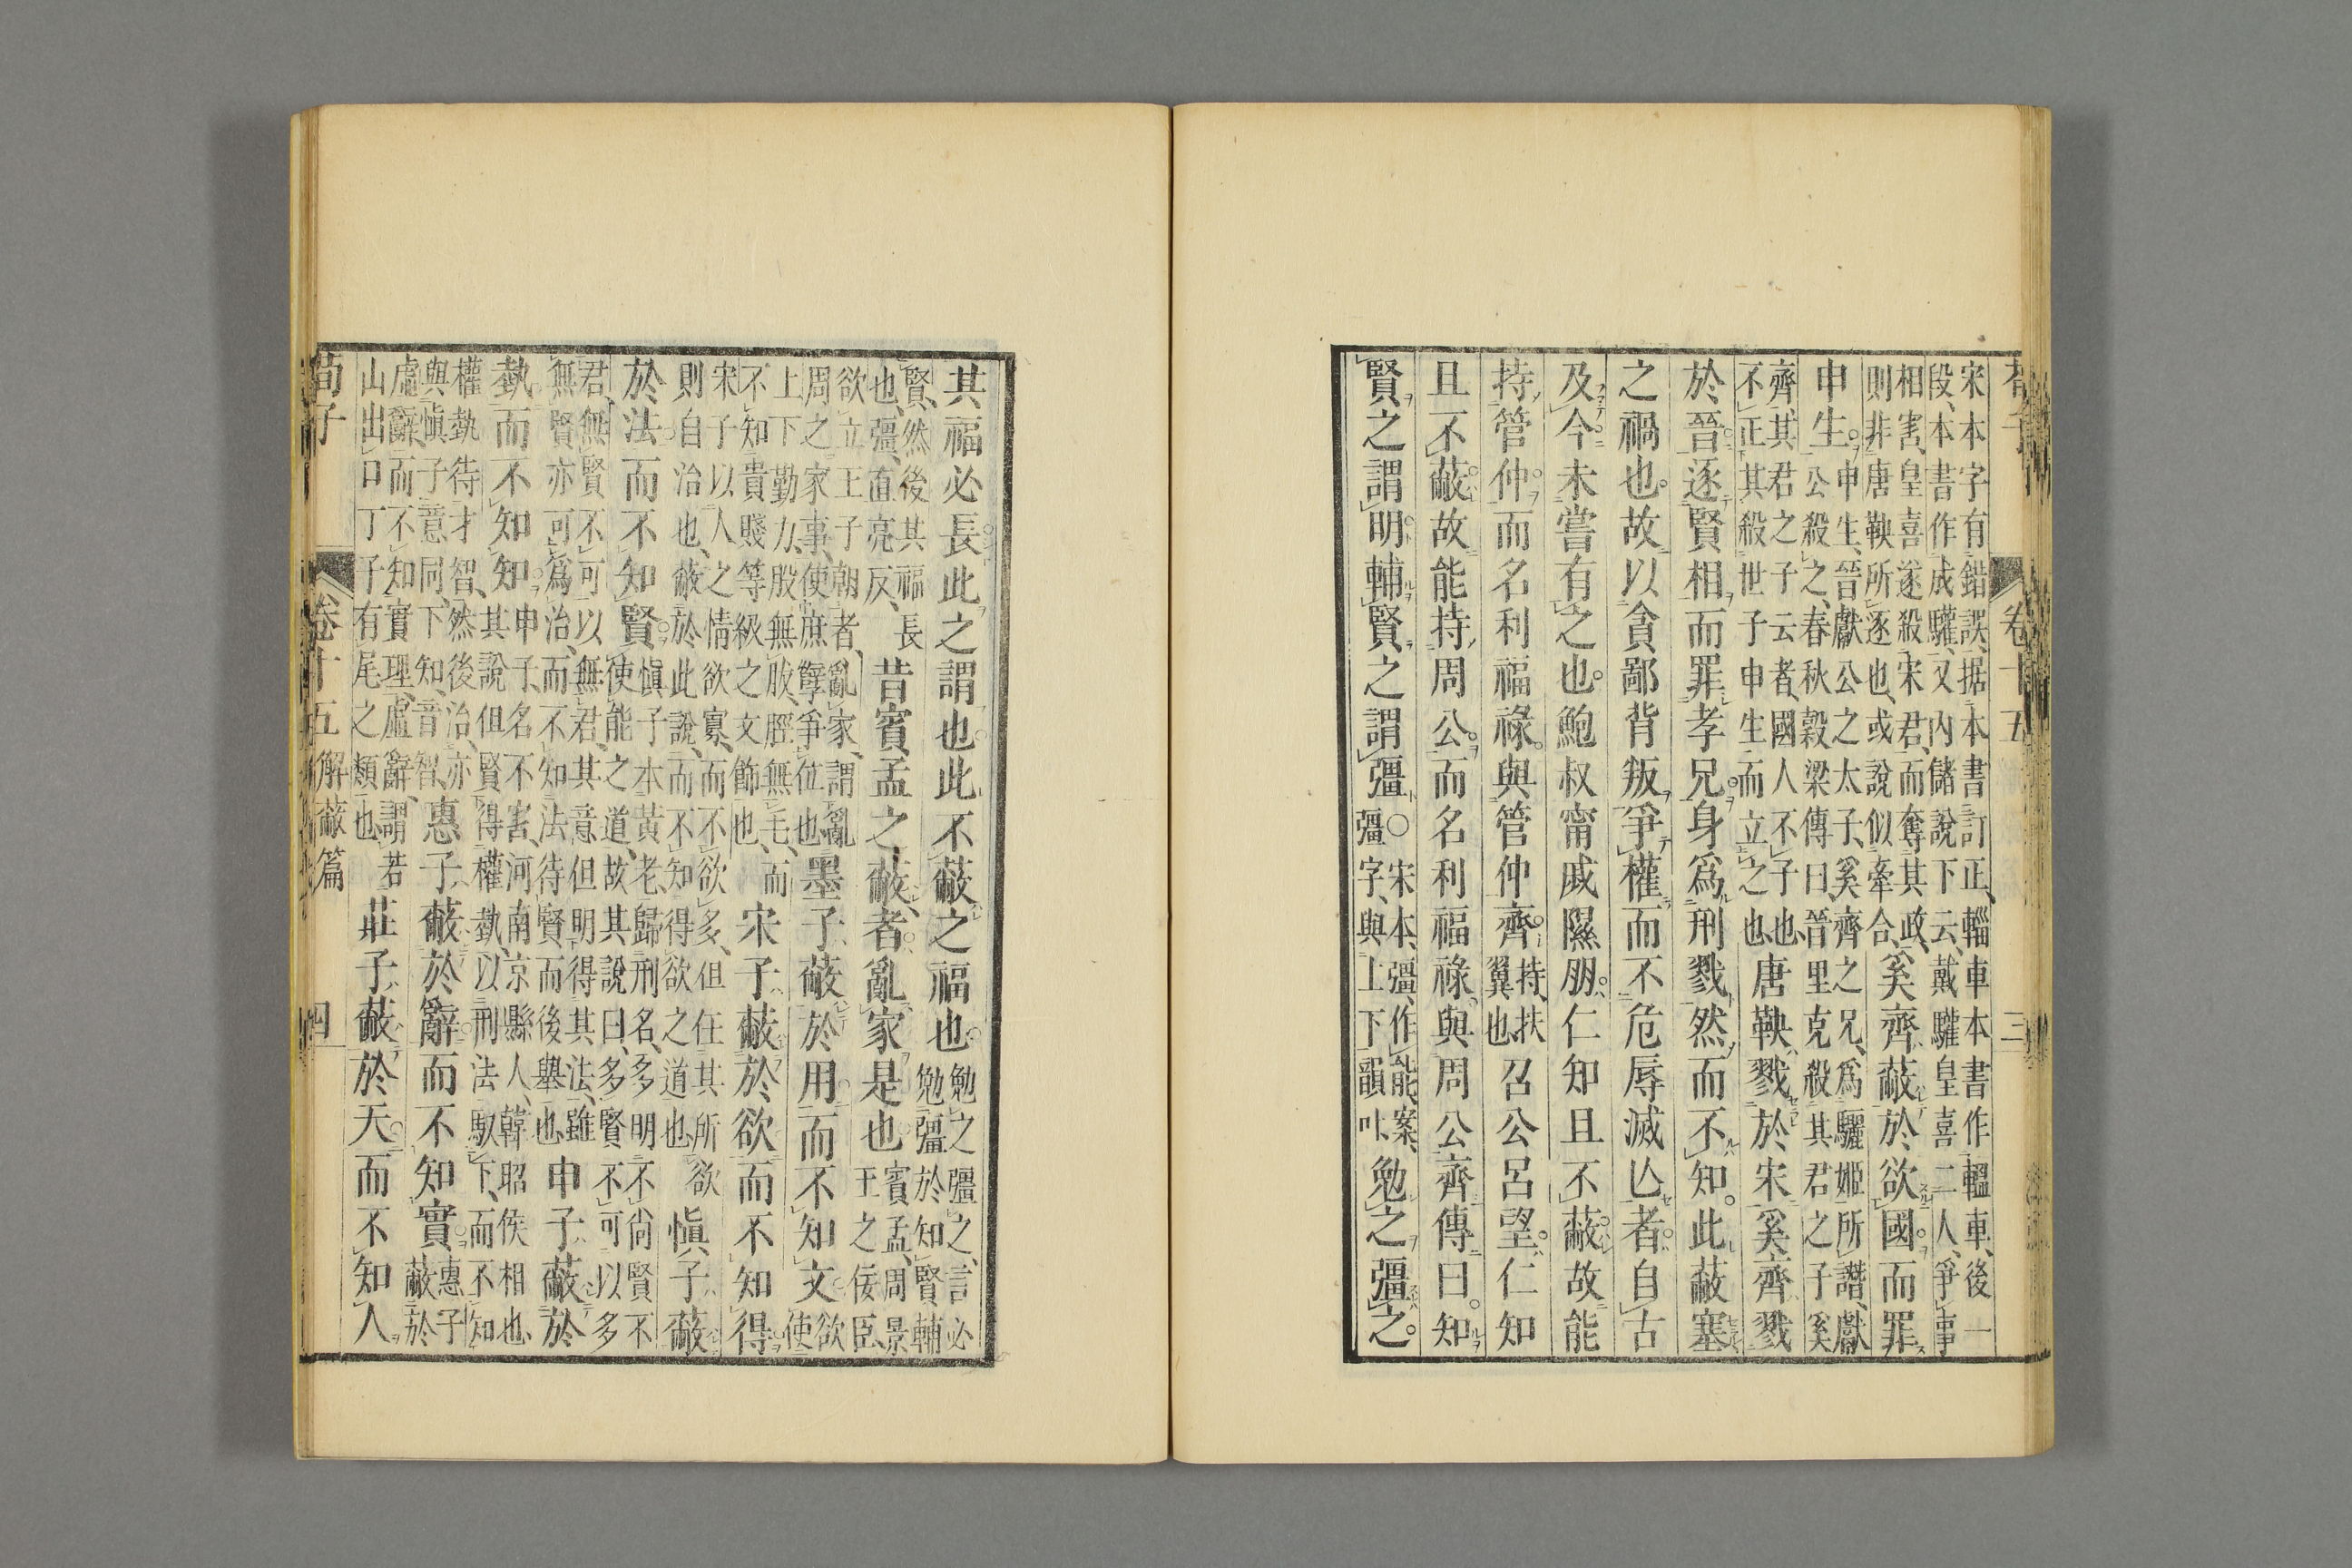 荀子 卷十五 三
宋本字有錯誤、据本書訂正、輜車本書作轀車、後一
段、本書作成驩、又内儲說下云、戴驩皇喜二人、爭事
相害、皇喜遂殺宋君、而奪其政、
則非唐鞅所逐也、或說似牽合、
奚齊蔽於欲國而罪
申生。
申生、晉獻公之太子、奚齊之兄、爲驪姬所譖、獻
公殺之、春秋穀梁傳曰、晉里克殺其君之子奚
齊、其君之子云者、國人不子也、
不正其殺世子申生而立之也
唐鞅戮於宋奚齊戮
於晉逐賢相而罪孝兄。身爲刑戮然而不知。此蔽塞
之禍也。故以貪鄙背叛爭權而不危辱滅亾者。自古
及今未嘗有之也。鮑叔甯戚隰朋。仁知且不蔽。故能
持管仲。而名利福祿。與管仲齊
持、扶
翼也
召公呂望。仁知
且不蔽故能持周公。而名利福祿、與周公齊傳曰。知
賢之謂明輔賢之謂彊
○宋本、彊、作能、案、
彊字、與上下韻叶、
勉之彊之。
其福必長此之謂也此不蔽之福也
勉之彊之、言必
勉彊於知賢輔
賢、然後其福長
也、彊、直亮反、
昔賓孟之蔽者。亂家是也
賓孟、周景
王之佞臣、
欲立王子朝者、亂家、謂亂
周之家事、使庶孼爭位也
墨子蔽於用而不知文
欲
使
上下勤力、股無胈、脛無毛、而
不知貴賤等級之文飾也、
宋子蔽於欲而不知得
宋子以人之情欲寡、而不欲多、但任其所欲
則自治也、蔽於此說、而不知得欲之道也
慎子蔽
於法而不知賢
慎子本黄老、歸刑名、多明不尚賢不
使能之道、故其說曰、多賢不可以多
君、無賢不可以無君、其意但明得其法、雖
無賢亦可爲治、而不知法待賢而後舉也
申子蔽於
埶而不知知
申子、名不害、河南京縣人、韓昭侯相也
其說但賢得權埶、以刑法馭下、而不知
權埶待才智、然後治、亦
與慎子意同、下知、音智、
惠子蔽於辭而不知實
惠子
蔽於
虚辭、而不知實理、虚辭、謂若
山出口丁子有尾之類也
莊子蔽於天而不知人
荀子 卷十五 解蔽篇 四